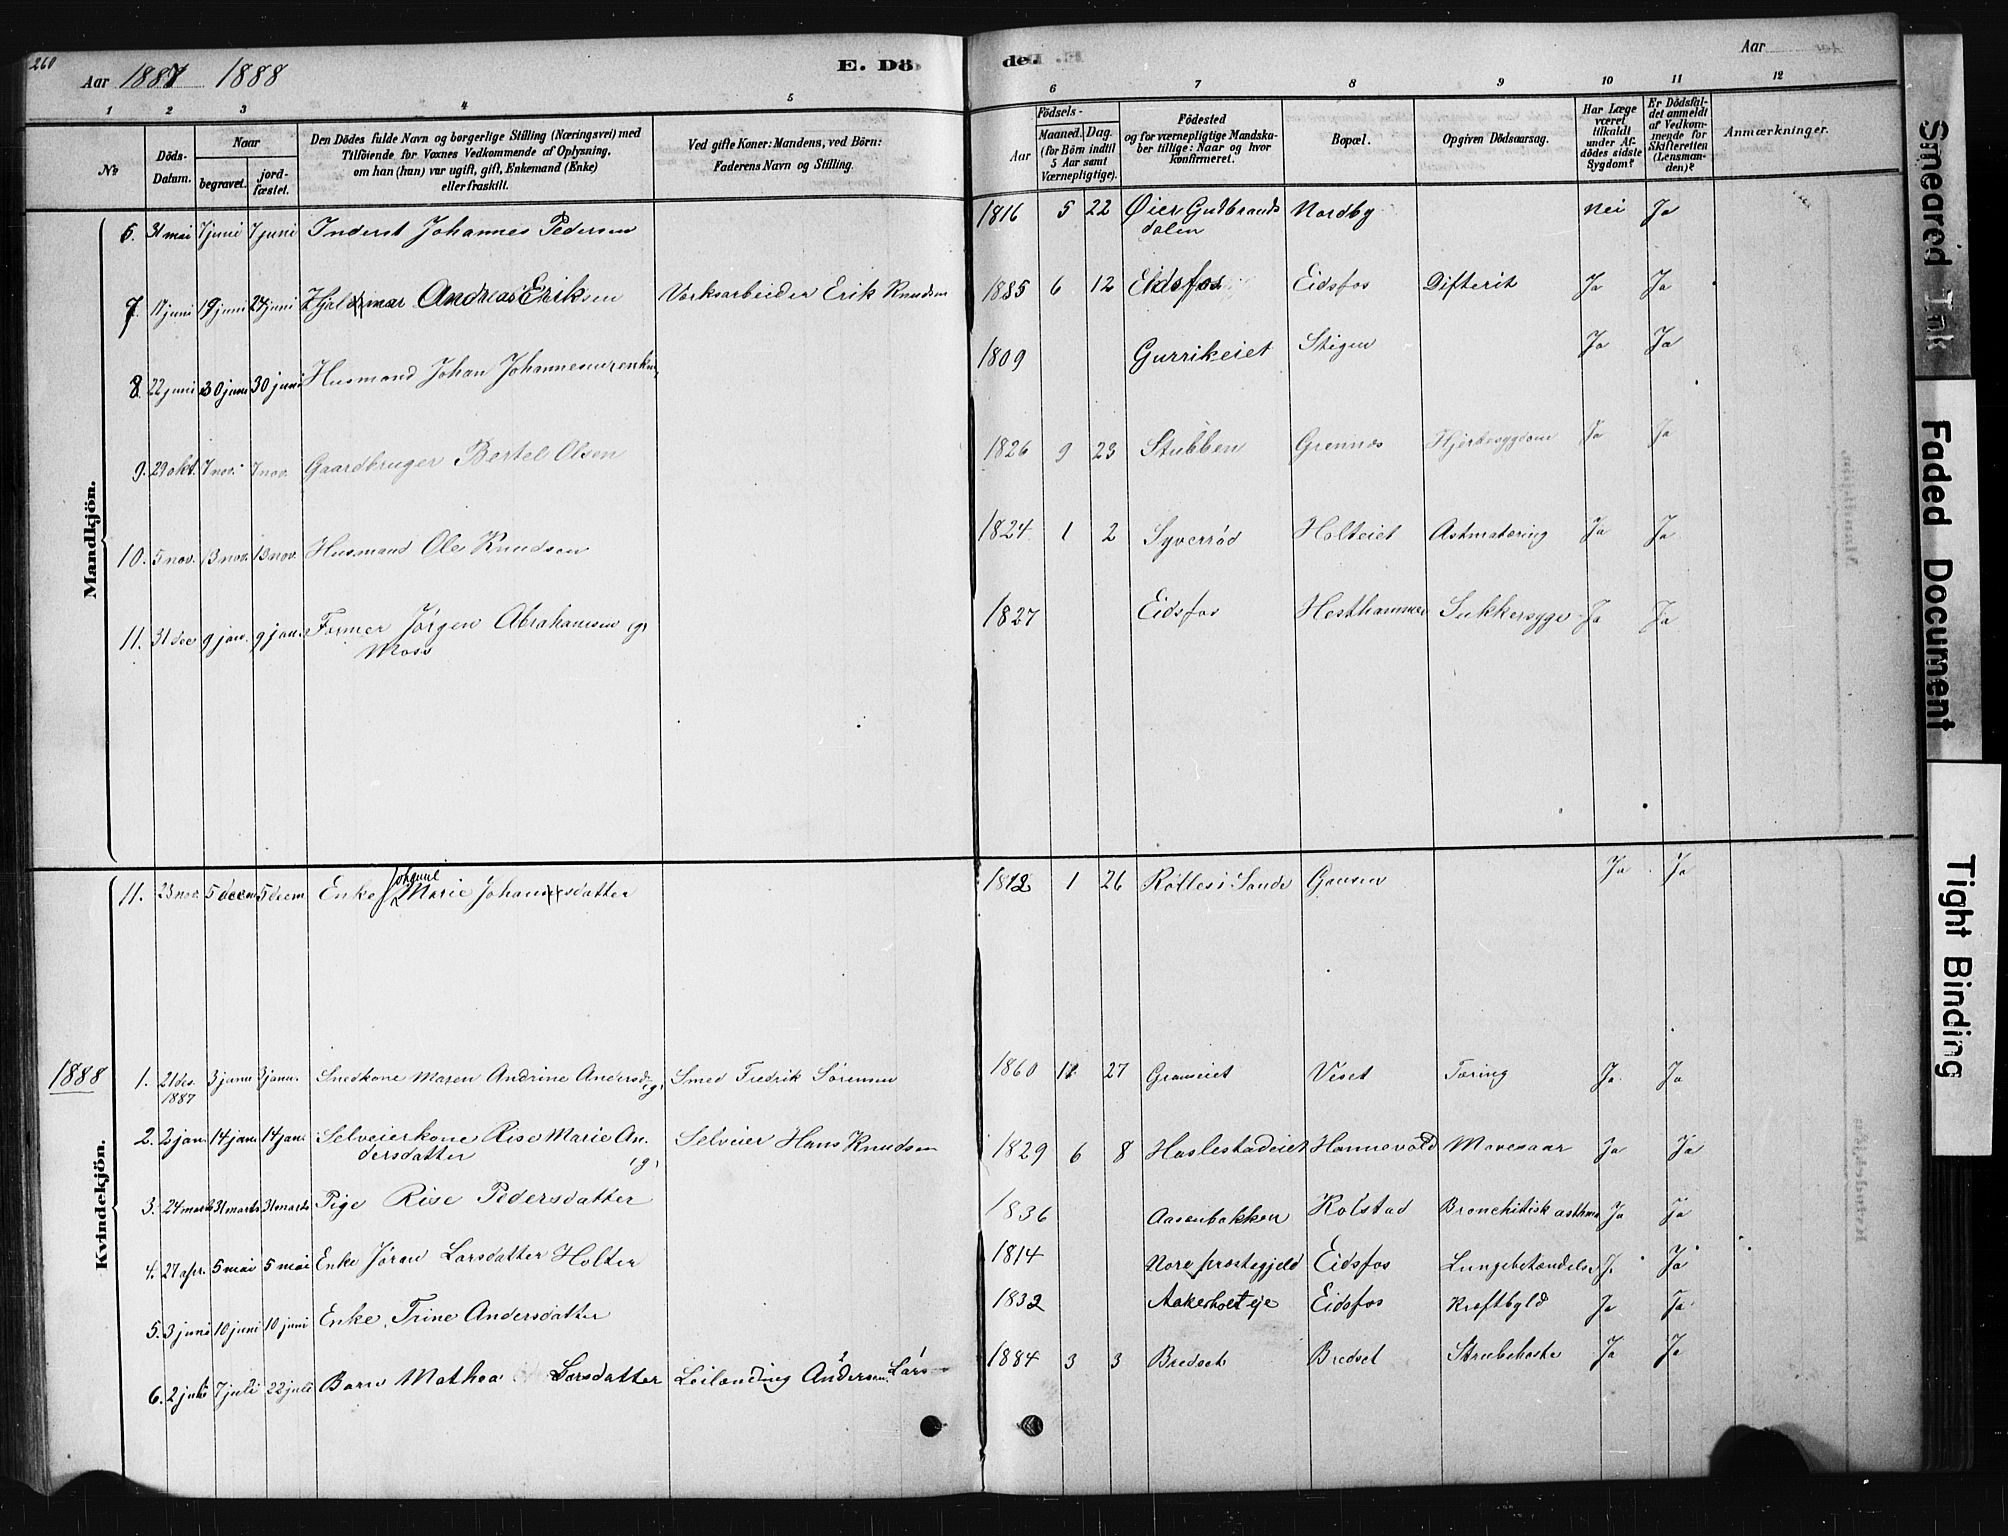 260
Aar 1887 1888
E. Dö
de.
Aar
1 2 3 4 5
6 7 8 9 10 11 12
No
Döds-
Datum.
Naar
begravet.
jord-
fæstet.
Den Dödes fulde Navn og borgerlige Stilling (Næringsvei) med
Tilföiende for Voxnes Vedkommende af Oplysning,
om han (hun) var ugift, gift, Enkemand (Enke)
eller fraskilt.
Ved gifte Koner: Mandens, ved Börn:
Faderens Navn og Stilling.
Födsels-
Aar
Maaned. Dag.
(for Börn indtil
5 Aar samt
Værnepligtige).
Födested
og for værnepligtige Mandska-
ber tillige: Naar og hvor
konfirmeret.
Bopæl.
Opgiven Dödsaarsag.
Har Læge
været
tilkaldt
under Af-
dödes sidste
Sygdom?
Er Dödsfal-
det anmeldt
af Vedkom-
mende for
Skifteretten
(Lensman-
den)?
Anmærkninger.
Mandkjön.
6. 31 mai 7 juni 7 juni Inderst Johannes Pedersen 1816 5 22 Øier Gudbrands
dalen Nordby nei Ja
7. 11 juni 19 juni 24 juni Hjalmar Andreas Eriksen Verksarbeider Erik Knudsen 1885 6 12 Eidsfos Eidsfos Difterit Ja Ja
8. 22 juni 30 juni 30 juni Husmand Johan Johannesen 1809 Gurrikeiet Stigen Ja Ja
9. 29 okt. 7 nov. 7 nov. Gaardbruger Bertel Olsen 1826 9 23 Stubben Grennes Hjertesygdom Ja Ja
10. 5 nov. 13 nov. 13 nov. Husmand Ole Knudsen 1824 1 2 Syverrød Holteiet Astmatæring Ja Ja
11. 31 dec 9 jan. 9 jan. Former Jörgen Abrahamsen (g)
Moss 1827 Eidsfos Hesthammer Sukkersyge Ja Ja
Kvindekjön.
11. 23 nov. 5 decem 5 decem Enke Johanne Marie Johansdatter 1812 1 26 Røtles i Sande Gausen Ja Ja
1888
1. 21 des.
1887 3 janu 3 janu. Smedkone Maren Andrine Andersd. (g) Smed Fredrik Sörensen 1860 11 27 Granseiet Viset Tæring Ja. Ja
2. 2 jan. 14 jan. 14 jan. Selveierkone Rise Marie An-
dersdatter (g) Selveier Hans Knudsen 1829 6 8 Haslestadeiet Hannevold Mavesaar Ja Ja
3. 24 marts 31 marts 31 marts Pige Rise Pedersdatter 1836 Aasenbakken Kolstad Bronchitisk asthma Ja Ja
4. 27 apr. 5 mai 5 mai Enke Jøran Larsdatter Holter 1814 Nore prestegjeld Eidsfos Lungebetændelse J. Ja
5. 3 juni 10 juni 10 juni Enke Trine Andersdatter 1832 Aakerholt eje Eidsfos Kræftbyld Ja Ja
6. 2 juli 7 juli 22 juli Barn Mathea Larsdatter Leilænding Andersen Lars 1884 3 3 Bredset Bredset Strubehoste Ja Ja
Smeared Ink
Faded Document
Tight Binding